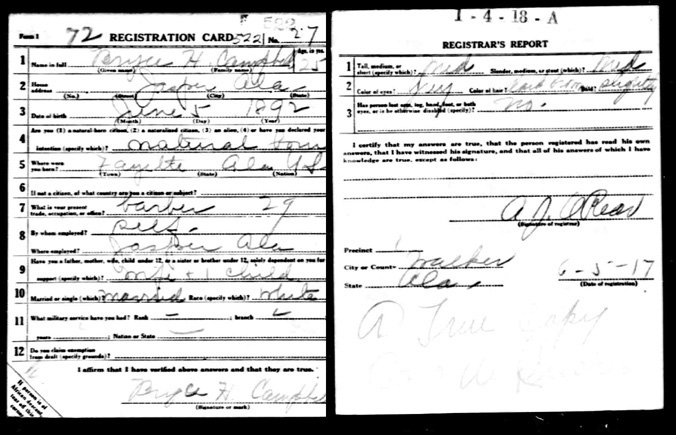 Form 1 72 REGISTRATION CARD 5221 No. 27
1 Name in full Bryce H. Campbell Age, in yrs. 25
(Given name) (Family name)
2 Home address Jasper Ala
(No.) (Street) (City) (State)
3 Date of birth June 5 1892
(Month) (Day) (Year)
4 Are you (1) a natural-born citizen, (2) a naturalized citizen, (3) an alien, (4) or have you declared your
intention (specify which)? natural born
5 Where were you born? Fayette Ala US
(Town) (State) (Nation)
6 If not a citizen, of what country are you a citizen or subject?
7 What is your present trade, occupation, or office? barber 29
8 By whom employed? self
Where employed? Jasper Ala
9 Have you a father, mother, wife, child under 12, or a sister or brother under 12, solely dependent on you for
support (specify which)? wife + 1 child
10 Married or single (which)? married Race (specify which)? white
11 What military service have you had? Rank - ; branch
years ; Nation or State
12 Do you claim exemption from draft (specify grounds)?
I affirm that I have verified above answers and that they are true.
Bryce H. Campbell
(Signature or mark)
If person is of African descent, tear off this corner
1-4-18-A
REGISTRAR'S REPORT
1 Tall, medium, or short (specify which)? Med Slender, medium, or stout (which)? Med
2 Color of eyes? Color of hair? dark brown Bald? slightly
3 Has person lost arm, leg, hand, foot, or both eyes, or is he otherwise disabled (specify)? no.
I certify that my answers are true, that the person registered has read his own
answers, that I have witnessed his signature, and that all of his answers of which I have
knowledge are true, except as follows:
A. J.
(Signature of registrar)
Precinct 1
City or County Walker
State Ala. 6-5-17
(Date of registration)
A True Copy